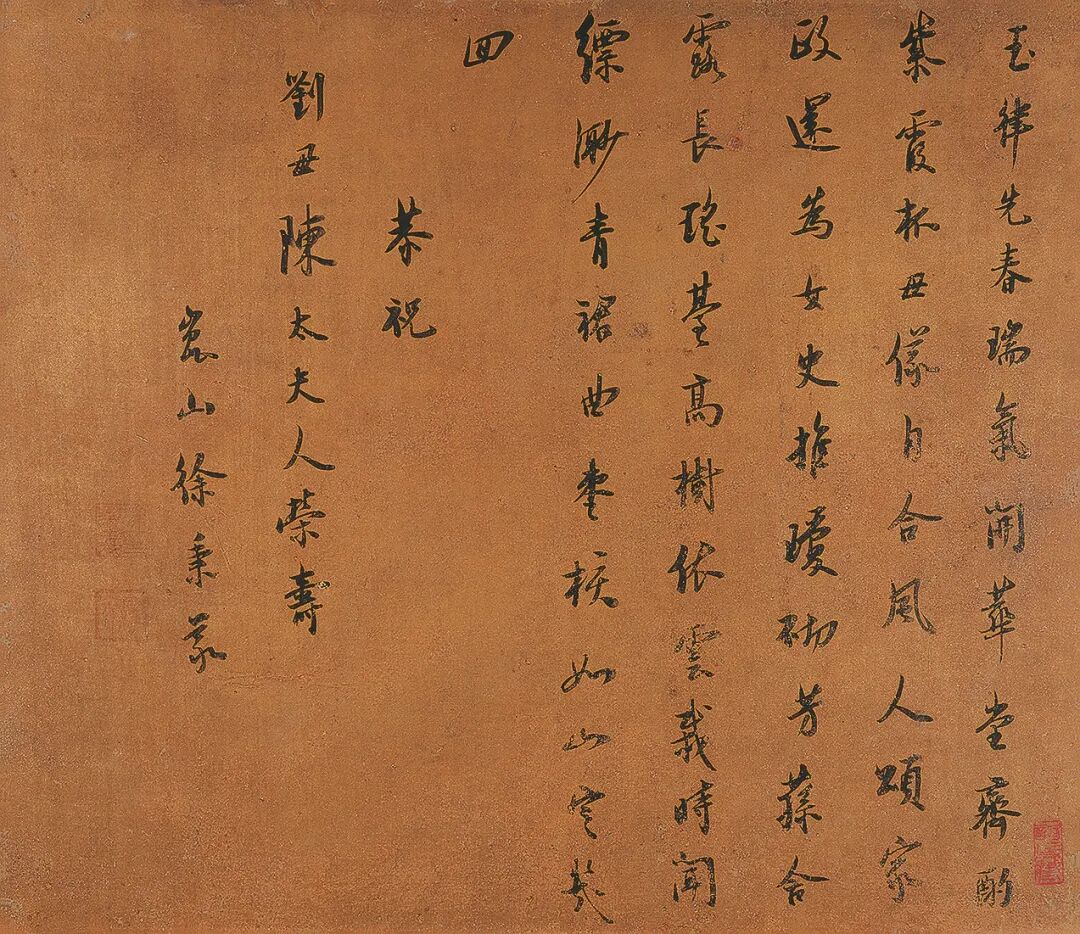 玉律先春瑞氣開華堂齊酌
紫霞杯母儀自合風人頌家
政還為女史推瓊砌芳蓀合
露長瑤臺高樹依雲栽時聞
縹緲青裙曲棗核如山定幾
回
恭祝
劉母陳太夫人榮壽
崑山徐秉義